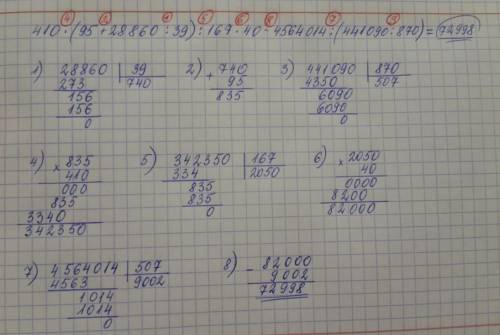 ④ ② ① ⑤ ⑥ ⑧ ⑦ ③
410·(95+28860:39):167·40-4564014:(441090:870)=72998
1) 28860 | 39 2) 740 3) 441090 | 870
273 740 + 95 4350 507
156 835 6090
156 6090
0 0
4) × 835 5) 342350 | 167 6) × 2050
410 334 2050 40
000 835 0000
835 835 8200
3340 0 82000
342350
7) 4564014 | 507 8) - 82000
4563 9002 9002
1014 72998
1014
0